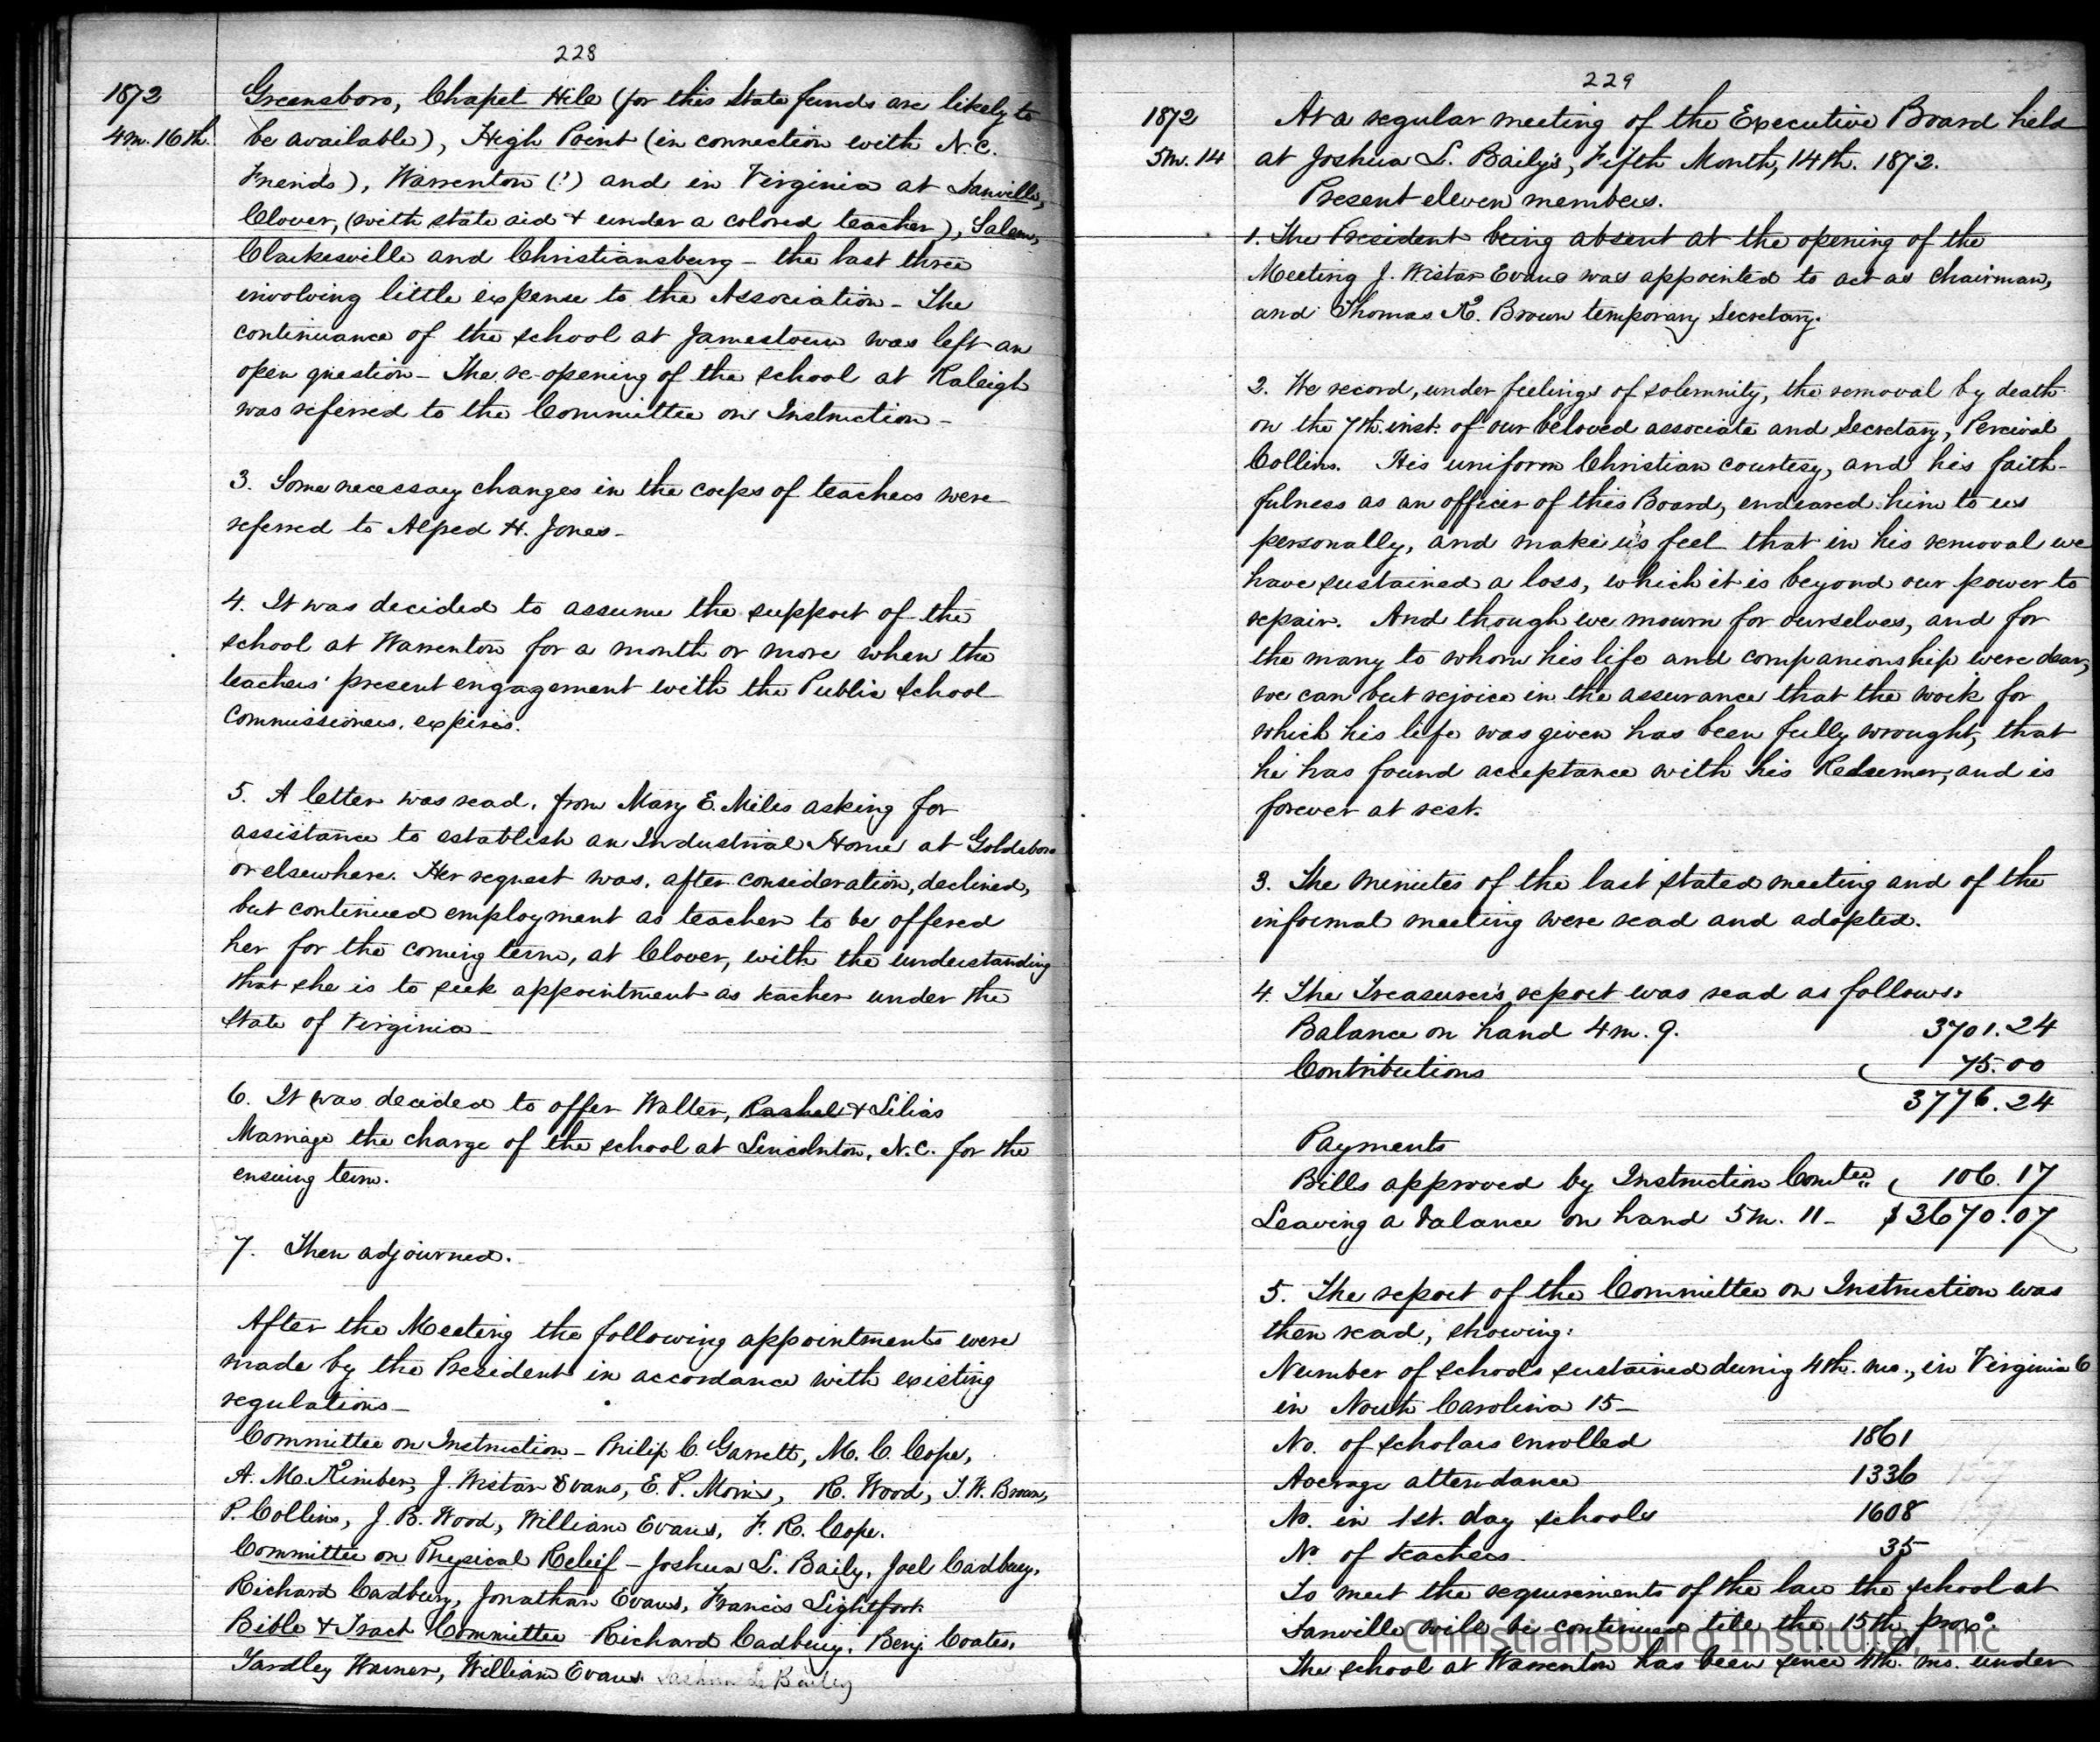 228
1872
4m. 16th.
Greensboro, Chapel Hill (for this State funds are likely to
be available), High Point (in connection with N.C.
Friends), Warrenton (?) and in Virginia at Danville,
Clover, (with state aid & under a colored teacher), Salem,
Clarkesville and Christiansburg - the last three
involving little expense to the Association - The
continuance of the school at Jamestown was left an
open question - The re-opening of the school at Raleigh
was referred to the Committee on Instruction -
3. Some necessary changes in the corps of teachers were
referred to Alfred H. Jones -
4. It was decided to assume the support of the
school at Warrenton for a month or more when the
teachers' present engagement with the Public School
Commissioners, expires.
5. A letter was read, from Mary E. Miles asking for
assistance to establish an Industrial Home at Goldsboro
or elsewhere. Her request was, after consideration, declined,
but continued employment as teacher to be offered
her for the coming term, at Clover, with the understanding
that she is to seek appointment as teacher under the
State of Virginia -
6. It was decided to offer Walter, Rachel & Lilias
Marriage the charge of the school at Lincolnton, N.C. for the
ensuing term.
7. Then adjourned.
After the Meeting the following appointments were
made by the President in accordance with existing
regulations -
Committee on Instruction - Philip C. Garrett, M. C. Cope,
A. M. Kimber, J. Wistar Evans, E. P. Morris, R. Wood, T. W. Brown,
P. Collins, J. B. Wood, William Evans, F. R. Cope.
Committee on Physical Relief - Joshua L. Baily, Joel Cadbury,
Richard Cadbury, Jonathan Evans, Francis Lightfoot.
Bible & Tract Committee Richard Cadbury, Benj. Coates,
Yardley Warner, William Evans. Joshua L Bailey
229
1872
5m. 14
At a regular meeting of the Executive Board held
at Joshua L. Baily's, Fifth Month, 14th. 1872.
Present eleven members.
1. The President being absent at the opening of the
Meeting J. Wistar Evans was appointed to act as Chairman,
and Thomas K. Brown temporary Secretary.
2. We record, under feelings of solemnity, the removal by death
on the 7th. inst. of our beloved associate and Secretary, Percival
Collins. His uniform Christian courtesy, and his faith-
fulness as an officer of this Board, endeared him to us
personally, and make us feel that in his removal we
have sustained a loss, which it is beyond our power to
repair. And though we mourn for ourselves, and for
the many to whom his life and companionship were dear,
we can but rejoice in the assurance that the work for
which his life was given has been fully wrought, that
he has found acceptance with his Redeemer, and is
forever at rest.
3. The minutes of the last stated meeting and of the
informal meeting were read and adopted.
4. The Treasurer's report was read as follows:
Balance on hand 4m. 9. 3701.24
Contributions 75.00
3776.24
Payments
Bills approved by Instruction Comtee. 106.17
Leaving a balance on hand 5m. 11 - $3670.07
5. The report of the Committee on Instruction was
then read, showing:
Number of schools sustained durnig 4th. mo., in Virginia 6
in North Carolina 15 -
No. of scholars enrolled 1861
Average attendance 1336
No. in 1st. day schools 1608
No of teachers 35
To meet the requirements of the law the school at
Danville will be continued till the 15th proxo.
The school at Warrenton has been since 4th. mo. under
Christiansburg Institute, Inc